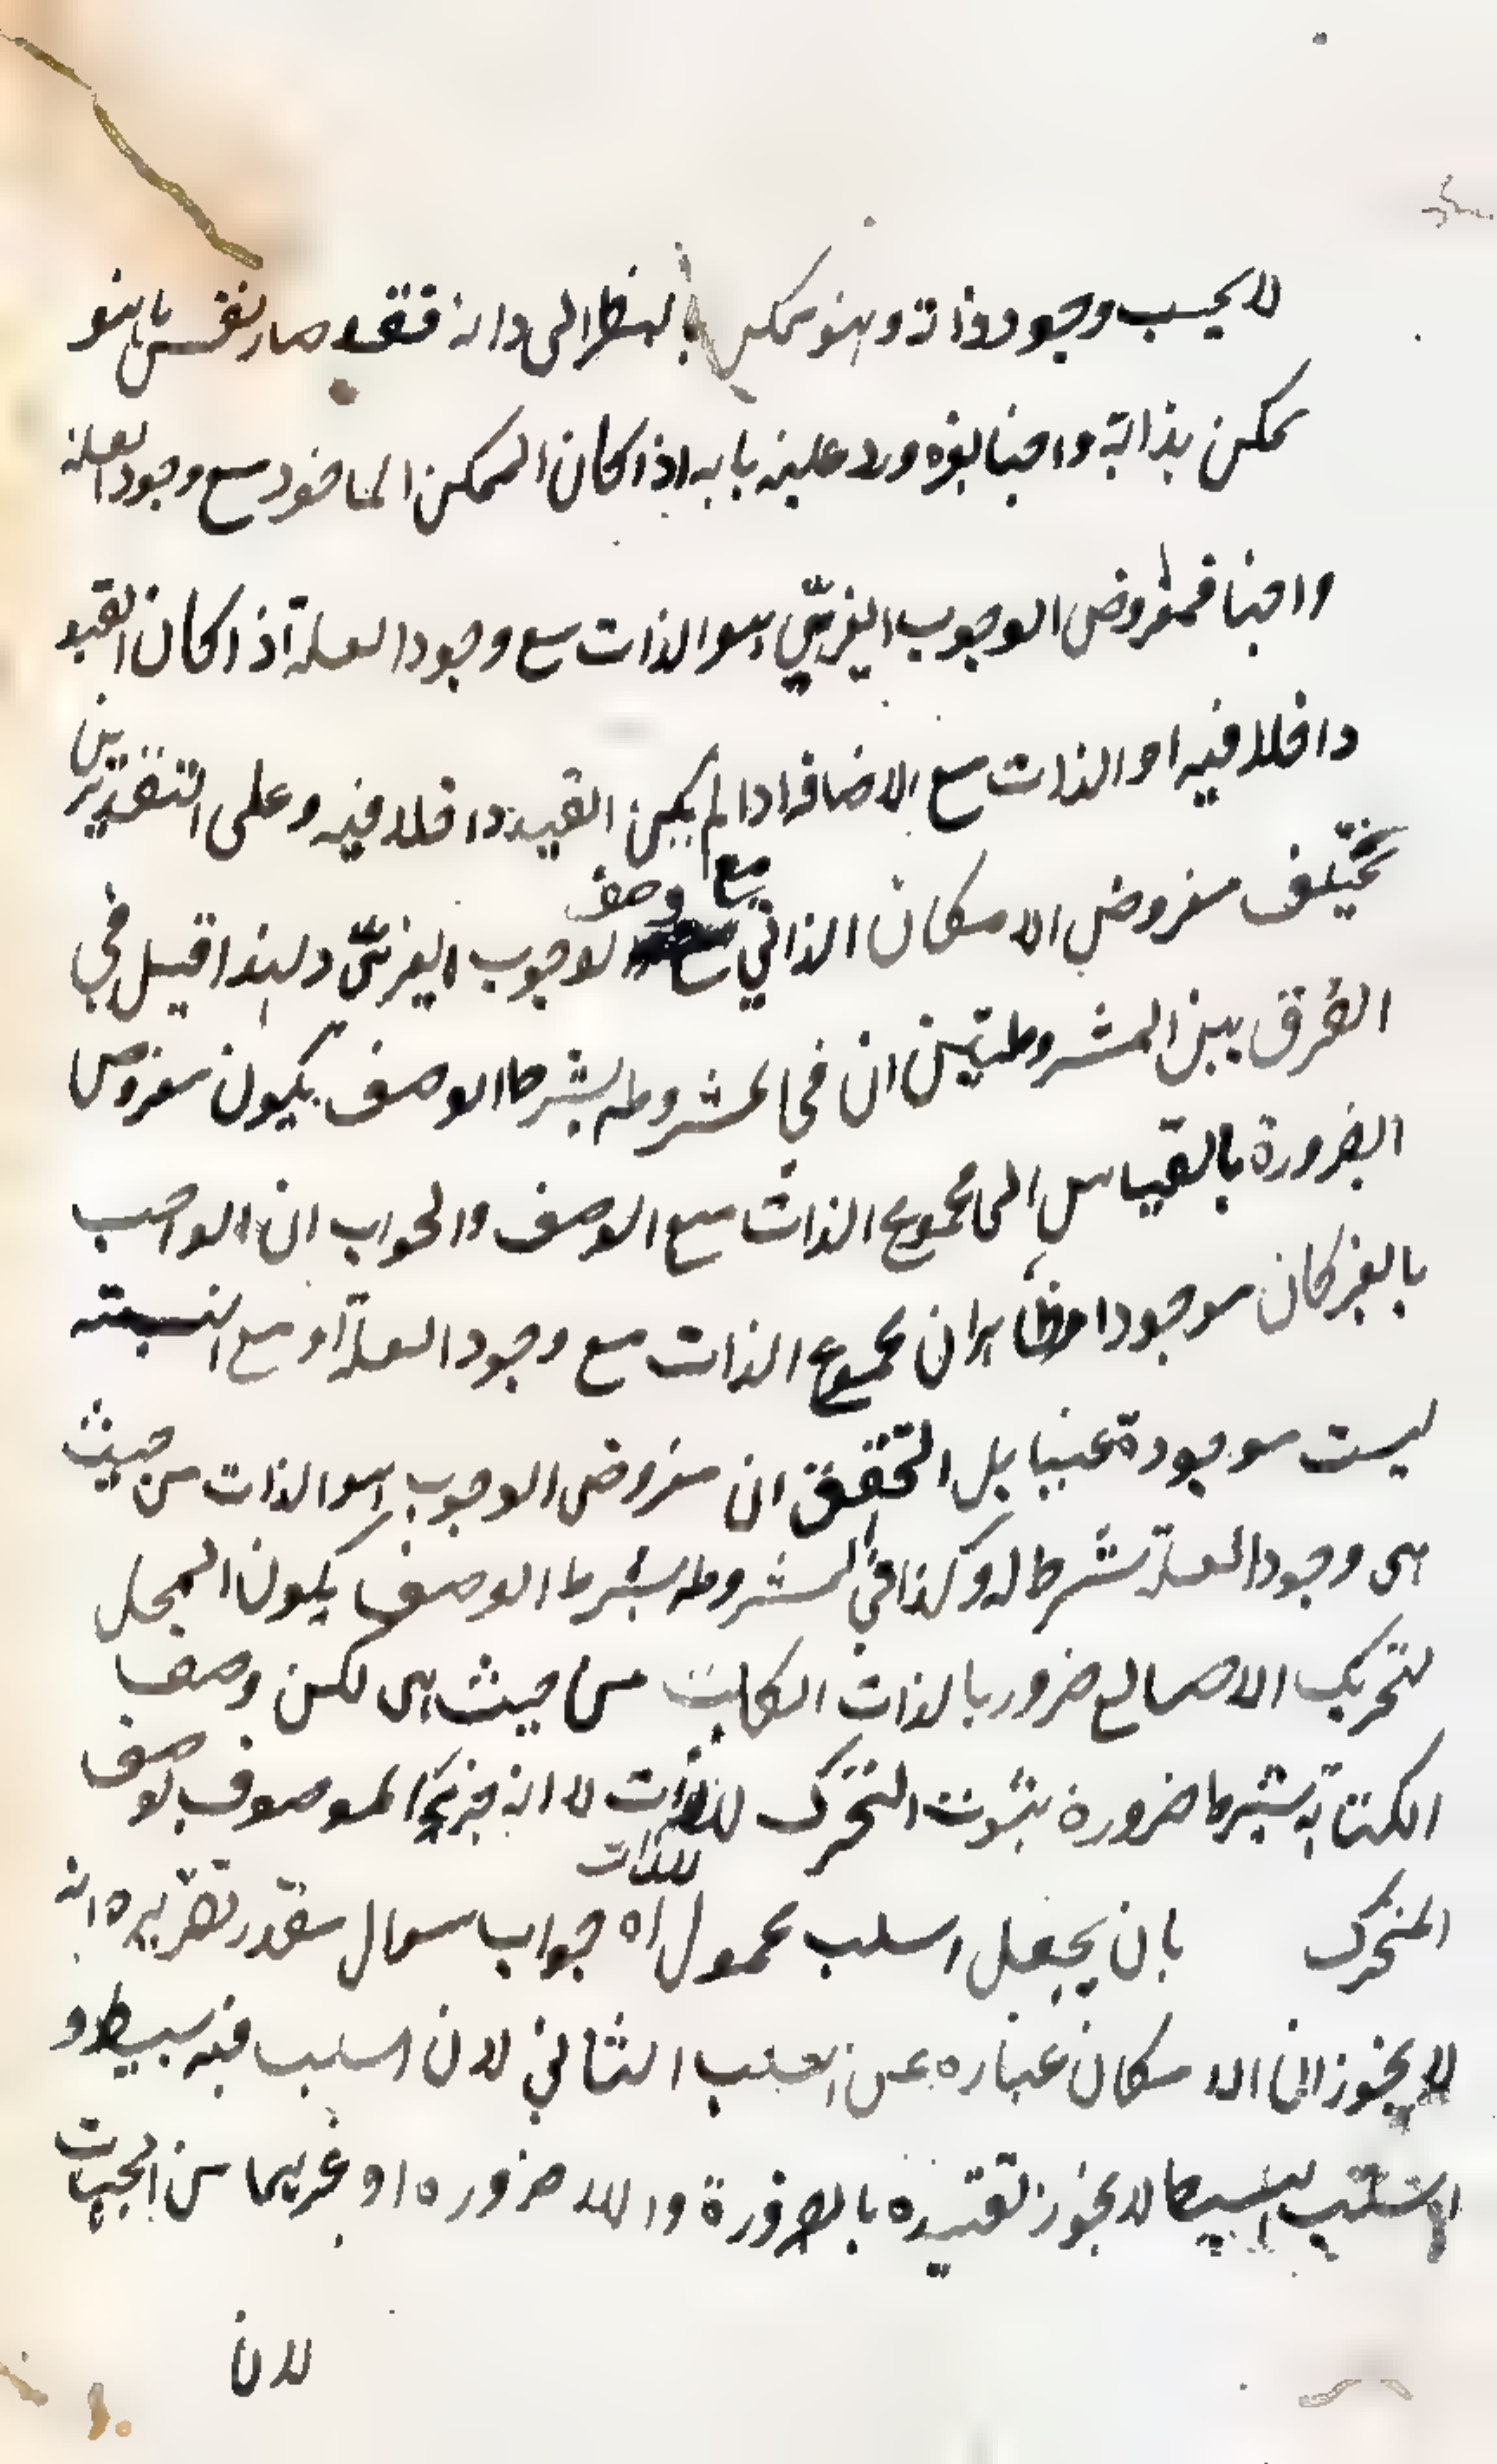 لا يجب وجود ذاته وهو ممكن بالنظر الى ذاته فقد صار نفس ما هو
ممكن بذاته واجبا بغيره ورد عليه بانه اذا كان الممكن الماخوذ مع وجود العلة
واجبا فمفروض الوجوب الغيرىّ هو الذات مع وجود العلة اذا كان القيد
داخلا فيه او الذات مع الاضافة اذا لم يكن القيد داخلا فيه وعلى التقديرين
تختلف مفروض الامكان الذاتي مع وصف الوجوب الغيرىّ ولهذا قيل في
الفرق بين المشروطتين ان في المشروطه بشرط الوصف يكون مفروض
الضرورة بالقياس الى مجموع الذات مع الوصف والجواب ان الواجب
بالغير كان موجودا وظاهر ان مجموع الذات مع وجود العلة او مع النسبته
ليست موجودة عينا بل التحقيق ان مفروض الوجوب هو الذات من حيث
هى وجود العلة شرط له وكذا في المشروطه بشرط الوصف يكون المحل
لتحريك الاصابع ضروريا لذات الكاتب من حيث هى لكن وصف
الكتابة شرط ضرورة بثبوت التحرك للذات للذات لا انه جزء الموصوف بوصف
المتحرك بان يجعل السلب محمولا اه جواب سوال مقدر تقريره انه
لا يجوز ان الامكان عباره عن السلب الثاني لان السلب فيه بسيط و
السلب البسيط لا يجوز تقييده بالضرورة واللا ضروره او غيرهما من الجهات
لان